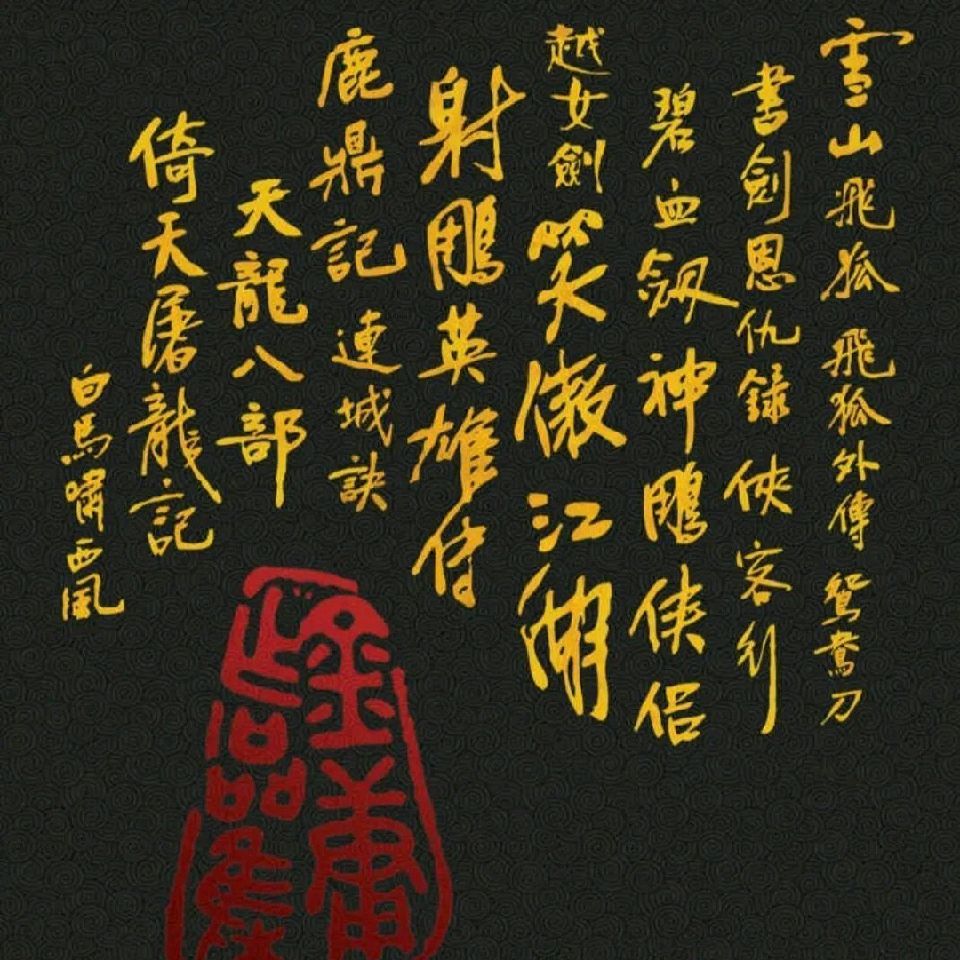 雪山飛狐 飛狐外傳 鴛鴦刀
書劍恩仇錄 俠客行
碧血劔 神鵰侠侶
越女劍 笑傲江湖
射鵰英雄傳
鹿鼎記 連城訣
天龍八部
倚天屠龍記
白馬嘯西風
金庸
作品集